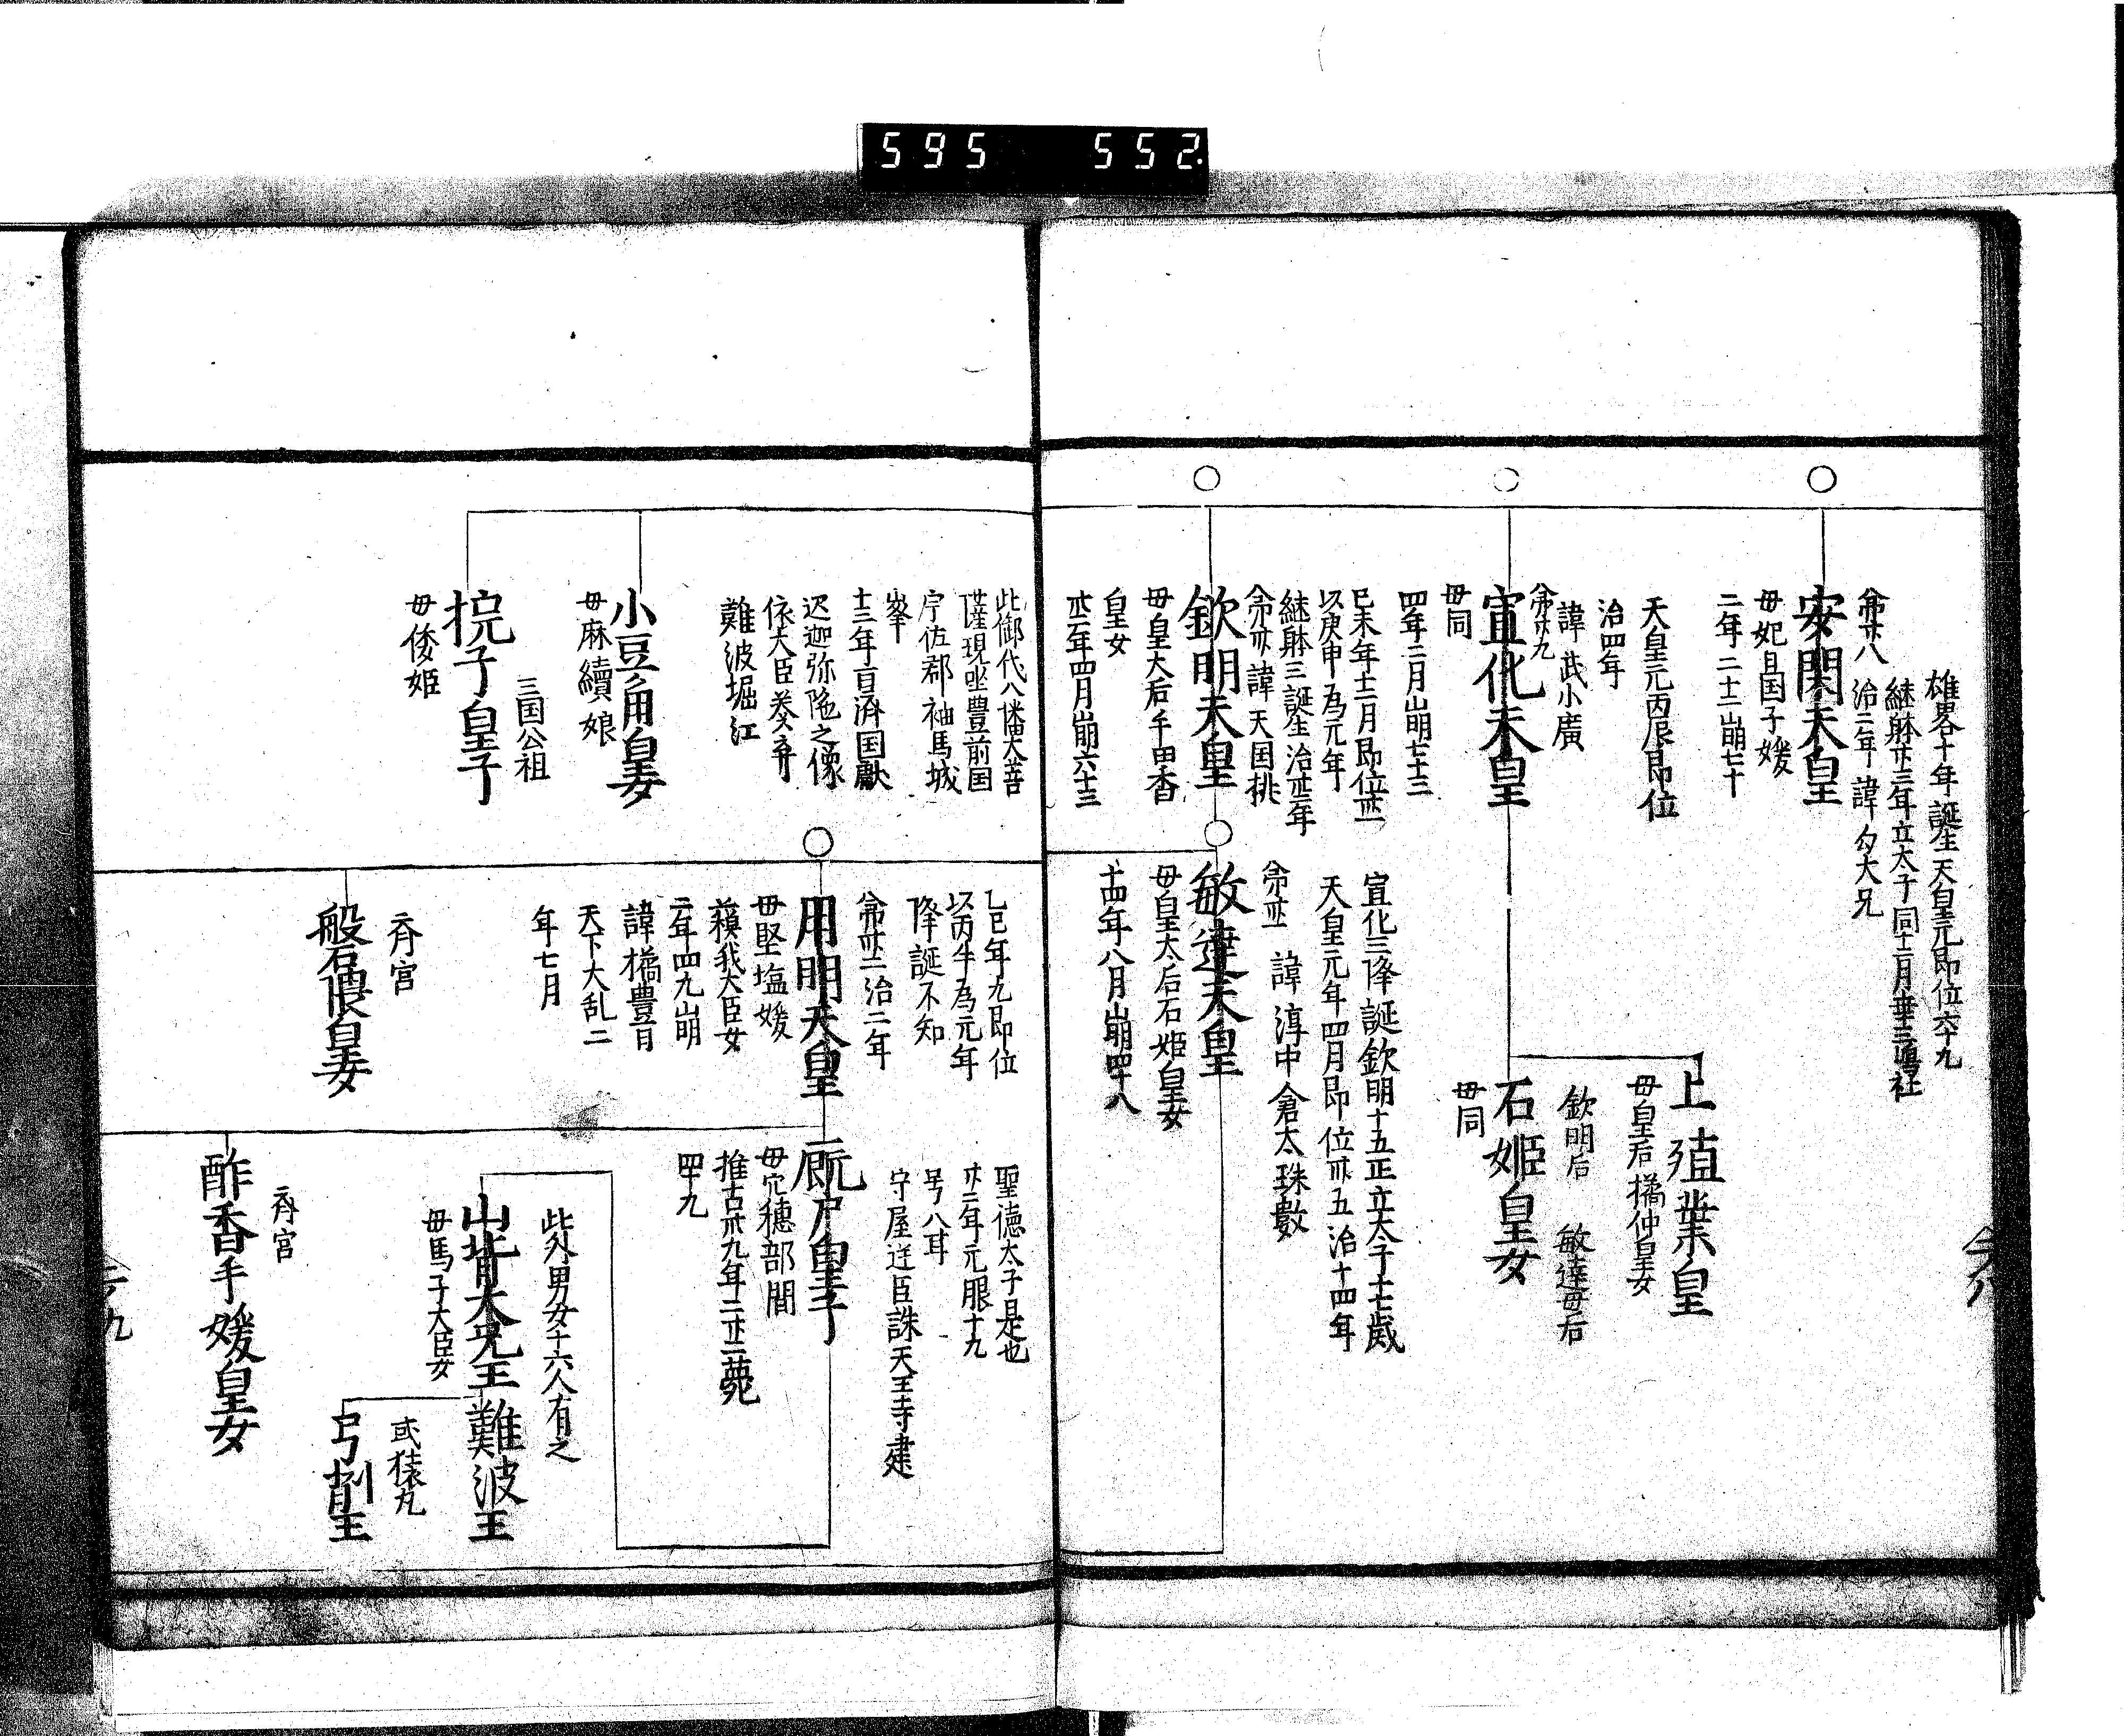 595 552
雄畧十年誕生天皇元即位六十九
継躰廿三年立太子同十二月垂三嶋社
治二年 諱 勾大兄
安閑天皇
母妃目国子媛
二年二十二崩七十
天皇元丙辰即位
治四年
諱 武小廣
宣化天皇
母同
四年二月崩七十三
上殖葉皇
母皇后橘仲皇女
欽明后 敏達母后
石姫皇女
母同
己未年十二月即位卅一
以庚申為元年
継躰三誕生治卅二年
諱 天国排
欽明天皇
母皇大后手田香
皇女
卅二年四月崩六十三
宣化三降誕欽明十五正立太子十七歳
天皇元年四月即位卅五治十四年
諱 淳中倉太珠敷
敏達天皇
母皇太后石姫皇女
十四年八月崩四十八
此御代八幡大菩
薩現坐豊前国
宇佐郡袖馬城
峯
十三年百済国献
迟迦弥陁之像
依大臣奏弃
難波堀江
小豆角皇女
母麻續娘
三国公祖
椀子皇子
母倭姫
乙巳年九即位
以丙午為元年
降誕不知
治二年
用明天皇
母堅塩媛
蘓我大臣女
二年四九崩
諱橘豊日
天下大乱二
年七月
斉宮
般石隈皇女
聖徳太子是也
廿二年元服十九
号八耳
守屋逆臣誅天王寺建
厩戸皇子
母穴穂部間
推古廿九年二廿二薨
四十九
此外男女十六人有之
山背大兄王 難波王
母馬子大臣女
或猿丸
弓削王
斉宮
酢香手媛皇女